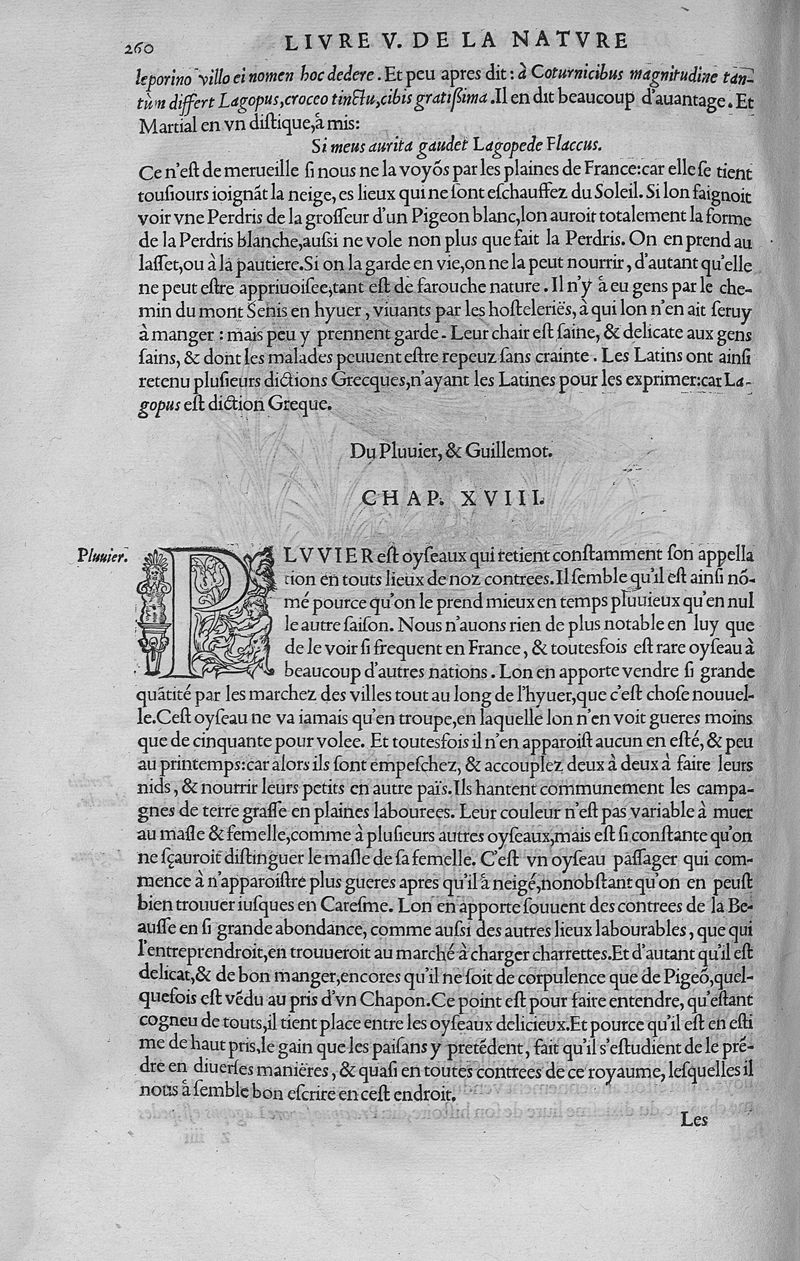 260
LIVRE V. DE LA NATVRE
leporino villo ei nomen hoc dedere. Et peu apres dit: à Coturnicibus magnitudine tan-
tùm differt Lagopus, croceo tinctu, cibis gratißima. Il en dit beaucoup d'auantage. Et
Martial en vn distique, á mis:
Si meus aurita gaudet Lagopede Flaccus.
Ce n'eſt de merueille ſi nous ne la voyõs par les plaines de France: car elle ſe tient
touſiours ioignãt la neige, es lieux qui ne ſont eſchauffez du Soleil. Si lon faignoit
voir vne Perdris de la groſſeur d'un Pigeon blanc, lon auroit totalement la forme
de la Perdris blanche, auſsi ne vole non plus que fait la Perdris. On en prend au
laſſet, ou à la pautiere. Si on la garde en vie, on ne la peut nourrir, d'autant qu'elle
ne peut eſtre appriuoiſee, tant eſt de farouche nature. Il n'y á eu gens par le che-
min du mont Senis en hyuer, viuants par les hoſteleriës, à qui lon n'en ait ſeruy
à manger: mais peu y prennent garde. Leur chair eſt ſaine, & delicate aux gens
ſains, & dont les malades peuuent eſtre repeuz ſans crainte. Les Latins ont ainſi
retenu pluſieurs dictions Grecques, n'ayant les Latines pour les exprimer: car La-
gopus eſt diction Greque.
Du Pluuier, & Guillemot.
CHAP. XVIII.
Pluuier.
PLVVIER eſt oyſeaux qui retient conſtamment ſon appella
tion en touts lieux de noz contrees. Il ſemble qu'il eſt ainſi nõ-
mé pource qu'on le prend mieux en temps pluuieux qu'en nul
le autre ſaiſon. Nous n'auons rien de plus notable en luy que
de le voir ſi frequent en France, & toutesfois eſt rare oyſeau à
beaucoup d'autres nations. Lon en apporte vendre ſi grande
quãtité par les marchez des villes tout au long de l'hyuer, que c'eſt choſe nouuel-
le. Ceſt oyſeau ne va iamais qu'en troupe, en laquelle lon n'en voit gueres moins
que de cinquante pour volee. Et toutesfois il n'en apparoiſt aucun en eſté, & peu
au printemps: car alors ils ſont empeſchez, & accouplez deux à deux à faire leurs
nids, & nourrir leurs petits en autre païs. Ils hantent communement les campa-
gnes de terre graſſe en plaines labourees. Leur couleur n'eſt pas variable à muer
au maſle & femelle, comme à pluſieurs autres oyſeaux, mais eſt ſi conſtante qu'on
ne ſçauroit diſtinguer le maſle de ſa femelle. C'eſt vn oyſeau paſſager qui com-
mence à n'apparoiſtre plus gueres apres qu'il á neigé, nonobſtant qu'on en peuſt
bien trouuer iuſques en Careſme. Lon en apporte ſouuent des contrees de la Be-
auſſe en ſi grande abondance, comme auſsi des autres lieux labourables, que qui
l'entreprendroit, en trouueroit au marché à charger charrettes. Et d'autant qu'il eſt
delicat, & de bon manger, encores qu'il ne ſoit de corpulence que de Pigeõ, quel-
queſois eſt vẽdu au pris d'vn Chapon. Ce point eſt pour faire entendre, qu'eſtant
cogneu de touts, il tient place entre les oyſeaux delicieux. Et pource qu'il eſt en eſti
me de haut pris, le gain que les païſans y pretẽdent, fait qu'il s'eſtudient de le prẽ-
dre en diuerſes manières, & quaſi en toutes contrees de ce royaume, leſquelles il
nous á ſemble bon eſcrire en ceſt endroit.
Les